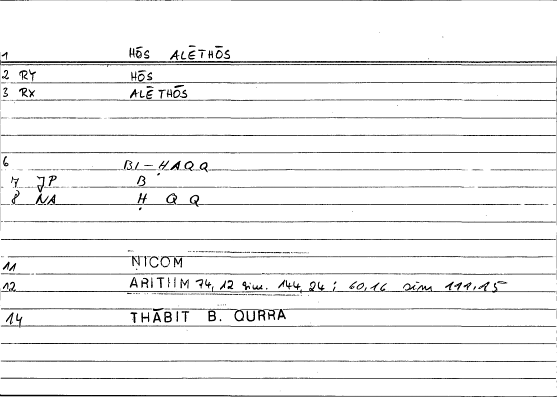 1 HŌS ALĒTHŌS
2 RY HŌS
3 RX ALĒTHŌS
6 BI-ḤAQQ
7 JP B
8 NA Ḥ Q Q
11 NICOM
12 ARITHM 74, 12 sim. 144, 24; 60,16 sim 111,15
14 THĀBIT B. QURRA